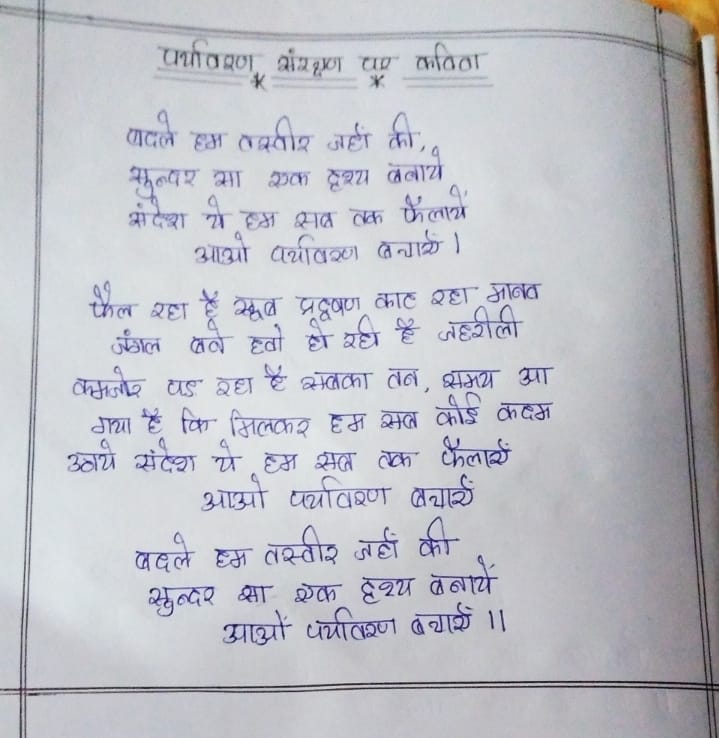 पर्यावरण संरक्षण पर कविता
बदले हम तस्वीर जहाँ की,
सुन्दर सा एक दृश्य बनाये
संदेश ये हम सब तक फैलायें
आओ पर्यावरण बचाएँ ।
फैल रहा है खूब प्रदूषण काट रहा मानव
जंगल वन हवा हो रही है जहरीली
कमजोर पड रहा है सबका तन, समय आ
गया है कि मिलकर हम सब कोई कदम
उठाये संदेश ये हम सब तक फैलाएँ
आओ पर्यावरण बचाएँ
बदले हम तस्वीर जहाँ की
सुन्दर सा एक दृश्य बनायें
आओं पर्यावरण बचाएँ ॥